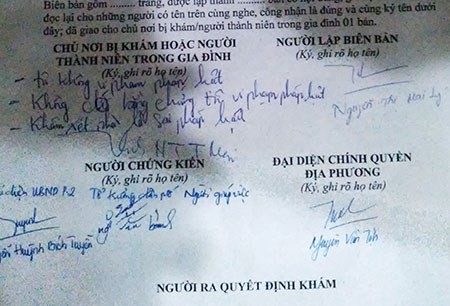 Biên bản gồm trang, được lập thành
đọc lại cho những người có tên trên cùng nghe, công nhận là đúng và cùng ký tên dưới
đây; đã giao cho chủ nơi bị khám/người thành niên trong gia đình 01 bản.
CHỦ NƠI BỊ KHÁM HOẶC NGƯỜI THÀNH NIÊN TRONG GIA ĐÌNH
(Ký, ghi rõ họ tên)
NGƯỜI LẬP BIÊN BẢN
(Ký, ghi rõ họ tên)
- tôi không vi phạm pháp luật
- Không có bằng chứng tôi vi phạm pháp luật
- Khám xét nhà là sai pháp luật
NGƯỜI CHỨNG KIẾN
(Ký, ghi rõ họ tên)
ĐẠI DIỆN CHÍNH QUYỀN
ĐỊA PHƯƠNG
(Ký, ghi rõ họ tên)
diện UBND P2
Huỳnh Bích Tuyền
Nguyễn Văn
NGƯỜI RA QUYẾT ĐỊNH KHÁM